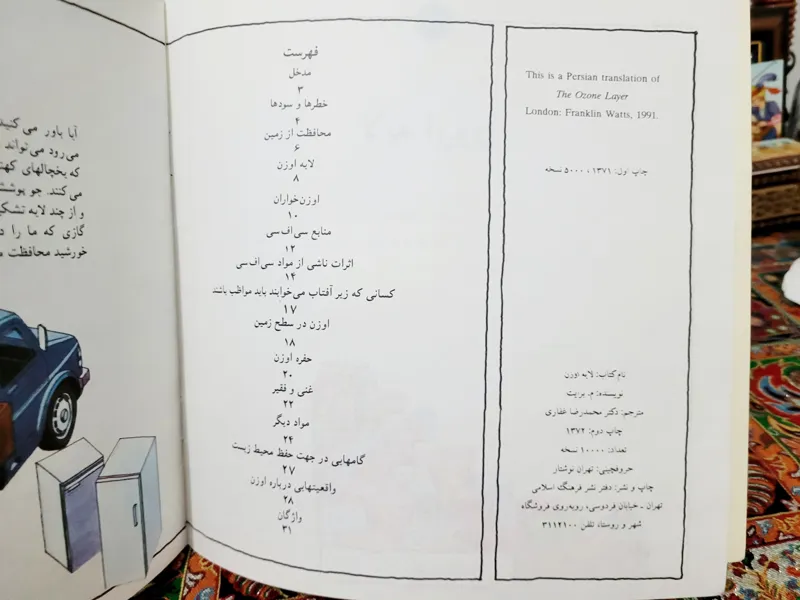 This is a Persian translation of
The Ozone Layer
London: Franklin Watts, 1991.
چاپ اول: ۱۳۷۱، ۵۰۰۰ نسخه
نام کتاب: لایه اوزن
نویسنده: م. برایت
مترجم: دکتر محمدرضا غفاری
چاپ دوم: ۱۳۷۲
تعداد: ۱۰۰۰۰ نسخه
حروفچینی: تهران نوشتار
چاپ و نشر: دفتر نشر فرهنگ اسلامی
تهران ـ خیابان فردوسی، روبه‌روی فروشگاه
شهر و روستا، تلفن ۳۱۱۲۱۰۰
فهرست
مدخل
۳
خطرها و سودها
۴
محافظت از زمین
۶
لایه اوزن
۸
اوزن‌خواران
۱۰
منابع سی‌اف‌سی
۱۲
اثرات ناشی از مواد سی‌اف‌سی
۱۴
کسانی که زیر آفتاب می‌خوابند باید مواظب باشند
۱۷
اوزن در سطح زمین
۱۸
حفره اوزن
۲۰
غنی و فقیر
۲۲
مواد دیگر
۲۴
گامهایی در جهت حفظ محیط زیست
۲۷
واقعیتهایی درباره اوزن
۲۸
واژگان
۳۱
آیا باور می‌کنید
می‌رود می‌تواند
که یخچالهای کهنه
می‌کنند. جو پوششی
و از چند لایه تشکیل
گازی که ما را در
خورشید محافظت